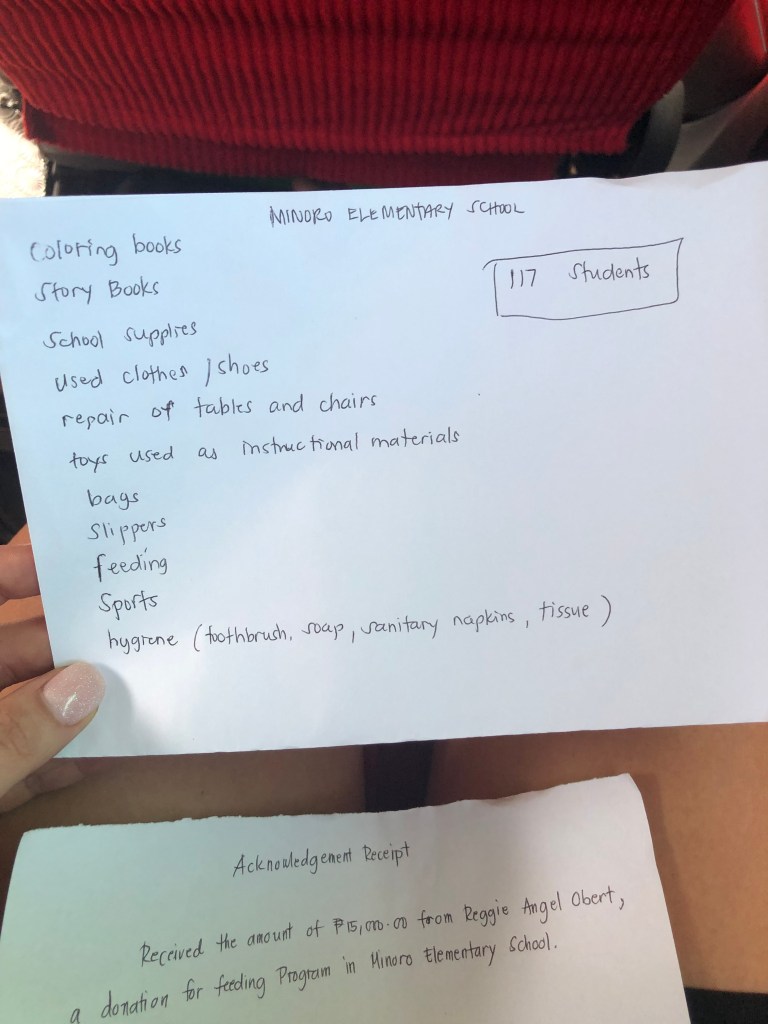 MINORO ELEMENTARY SCHOOL
Coloring books
117 Students
Story Books
School supplies
used clothes / shoes
repair of tables and chairs
toys used as instructional materials
bags
Slippers
feeding
Sports
hygiene (toothbrush, soap, sanitary napkins, tissue)
Acknowledgement Receipt
Received the amount of ₱15,000.00 from Reggie Angel Obert,
a donation for feeding Program in Minoro Elementary School.